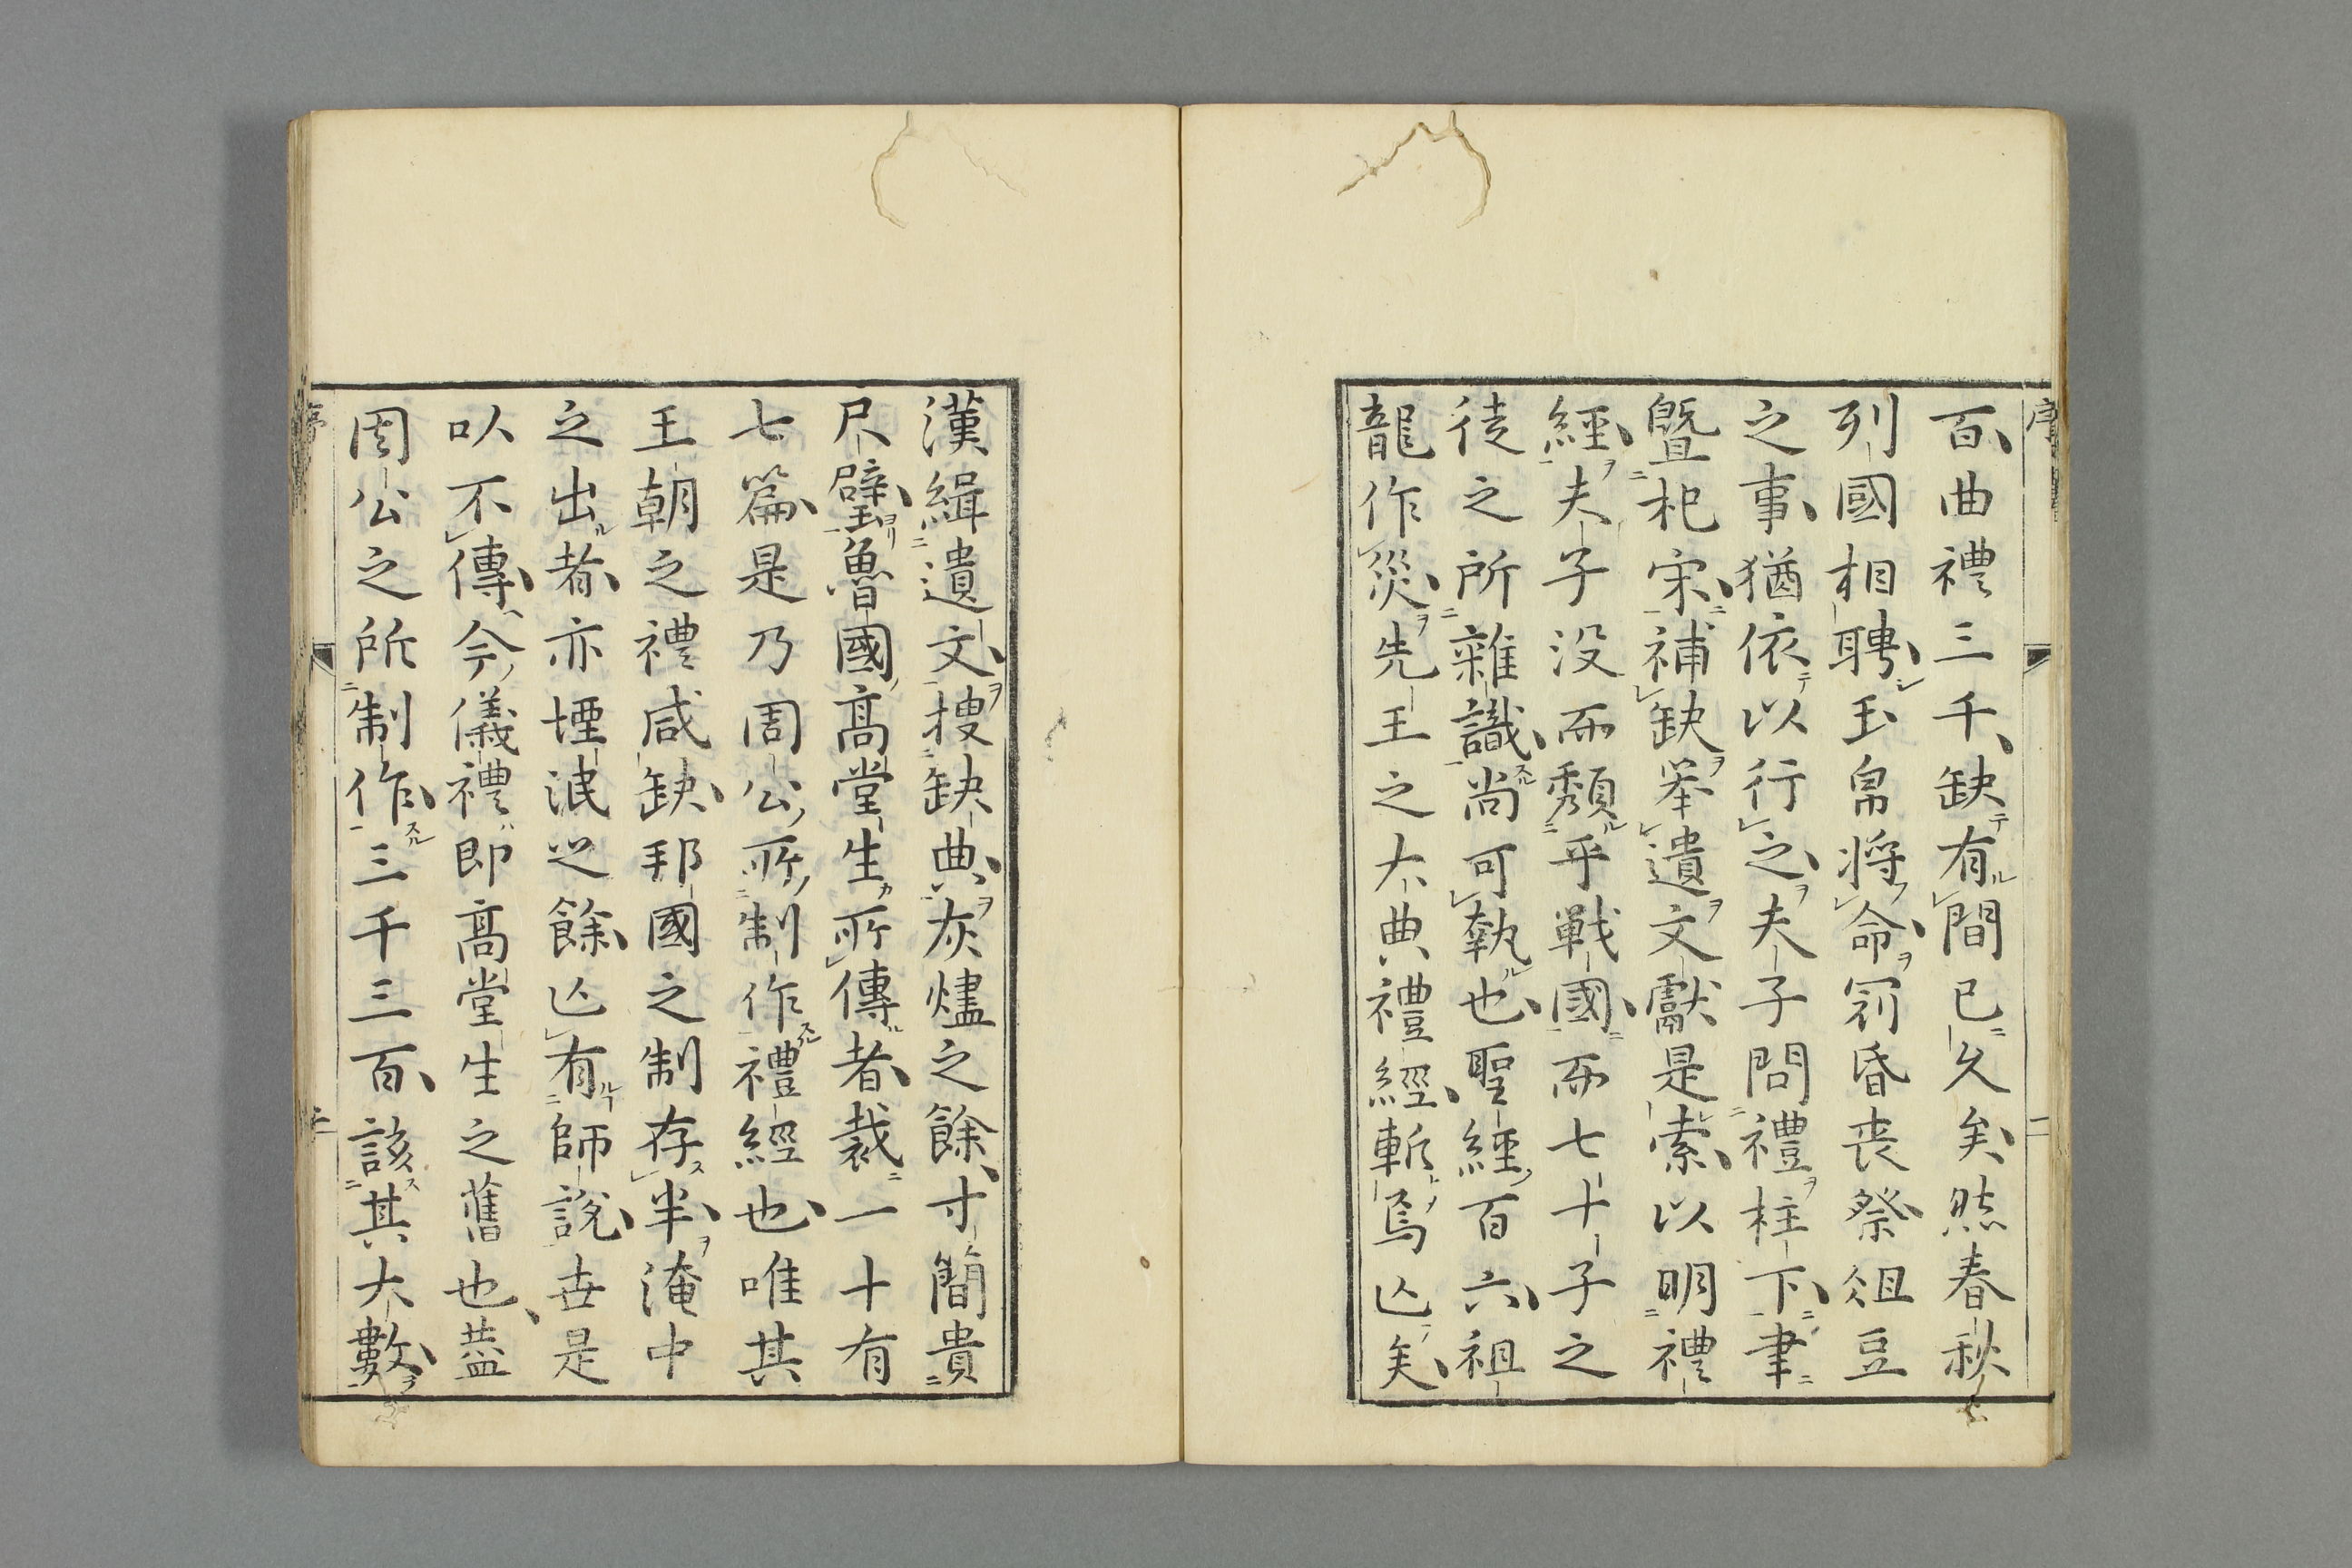 百曲禮三千缺有間已久矣然春秋
列國相聘玉帛將命冠昏喪祭俎豆
之事猶依以行之夫子問禮柱下聿
曁杞宋補缺举遺文獻是索以明禮
經夫子没而頽乎戰國而七十子之
徒之所雜識尚可執也聖經百六祖
龍作災先王之大典禮經斬焉亾矣
漢緝遺文搜缺典灰燼之餘寸簡貴
尺璧魯國高堂生所傳者裁一十有
七篇是乃周公所制作禮經也唯其
王朝之禮咸缺邦國之制存半淹中
之出者亦堙泯之餘亾有師説世是
以不傳今儀禮即高堂生之舊也葢
周公之所制作三千三百該其大數
序
二